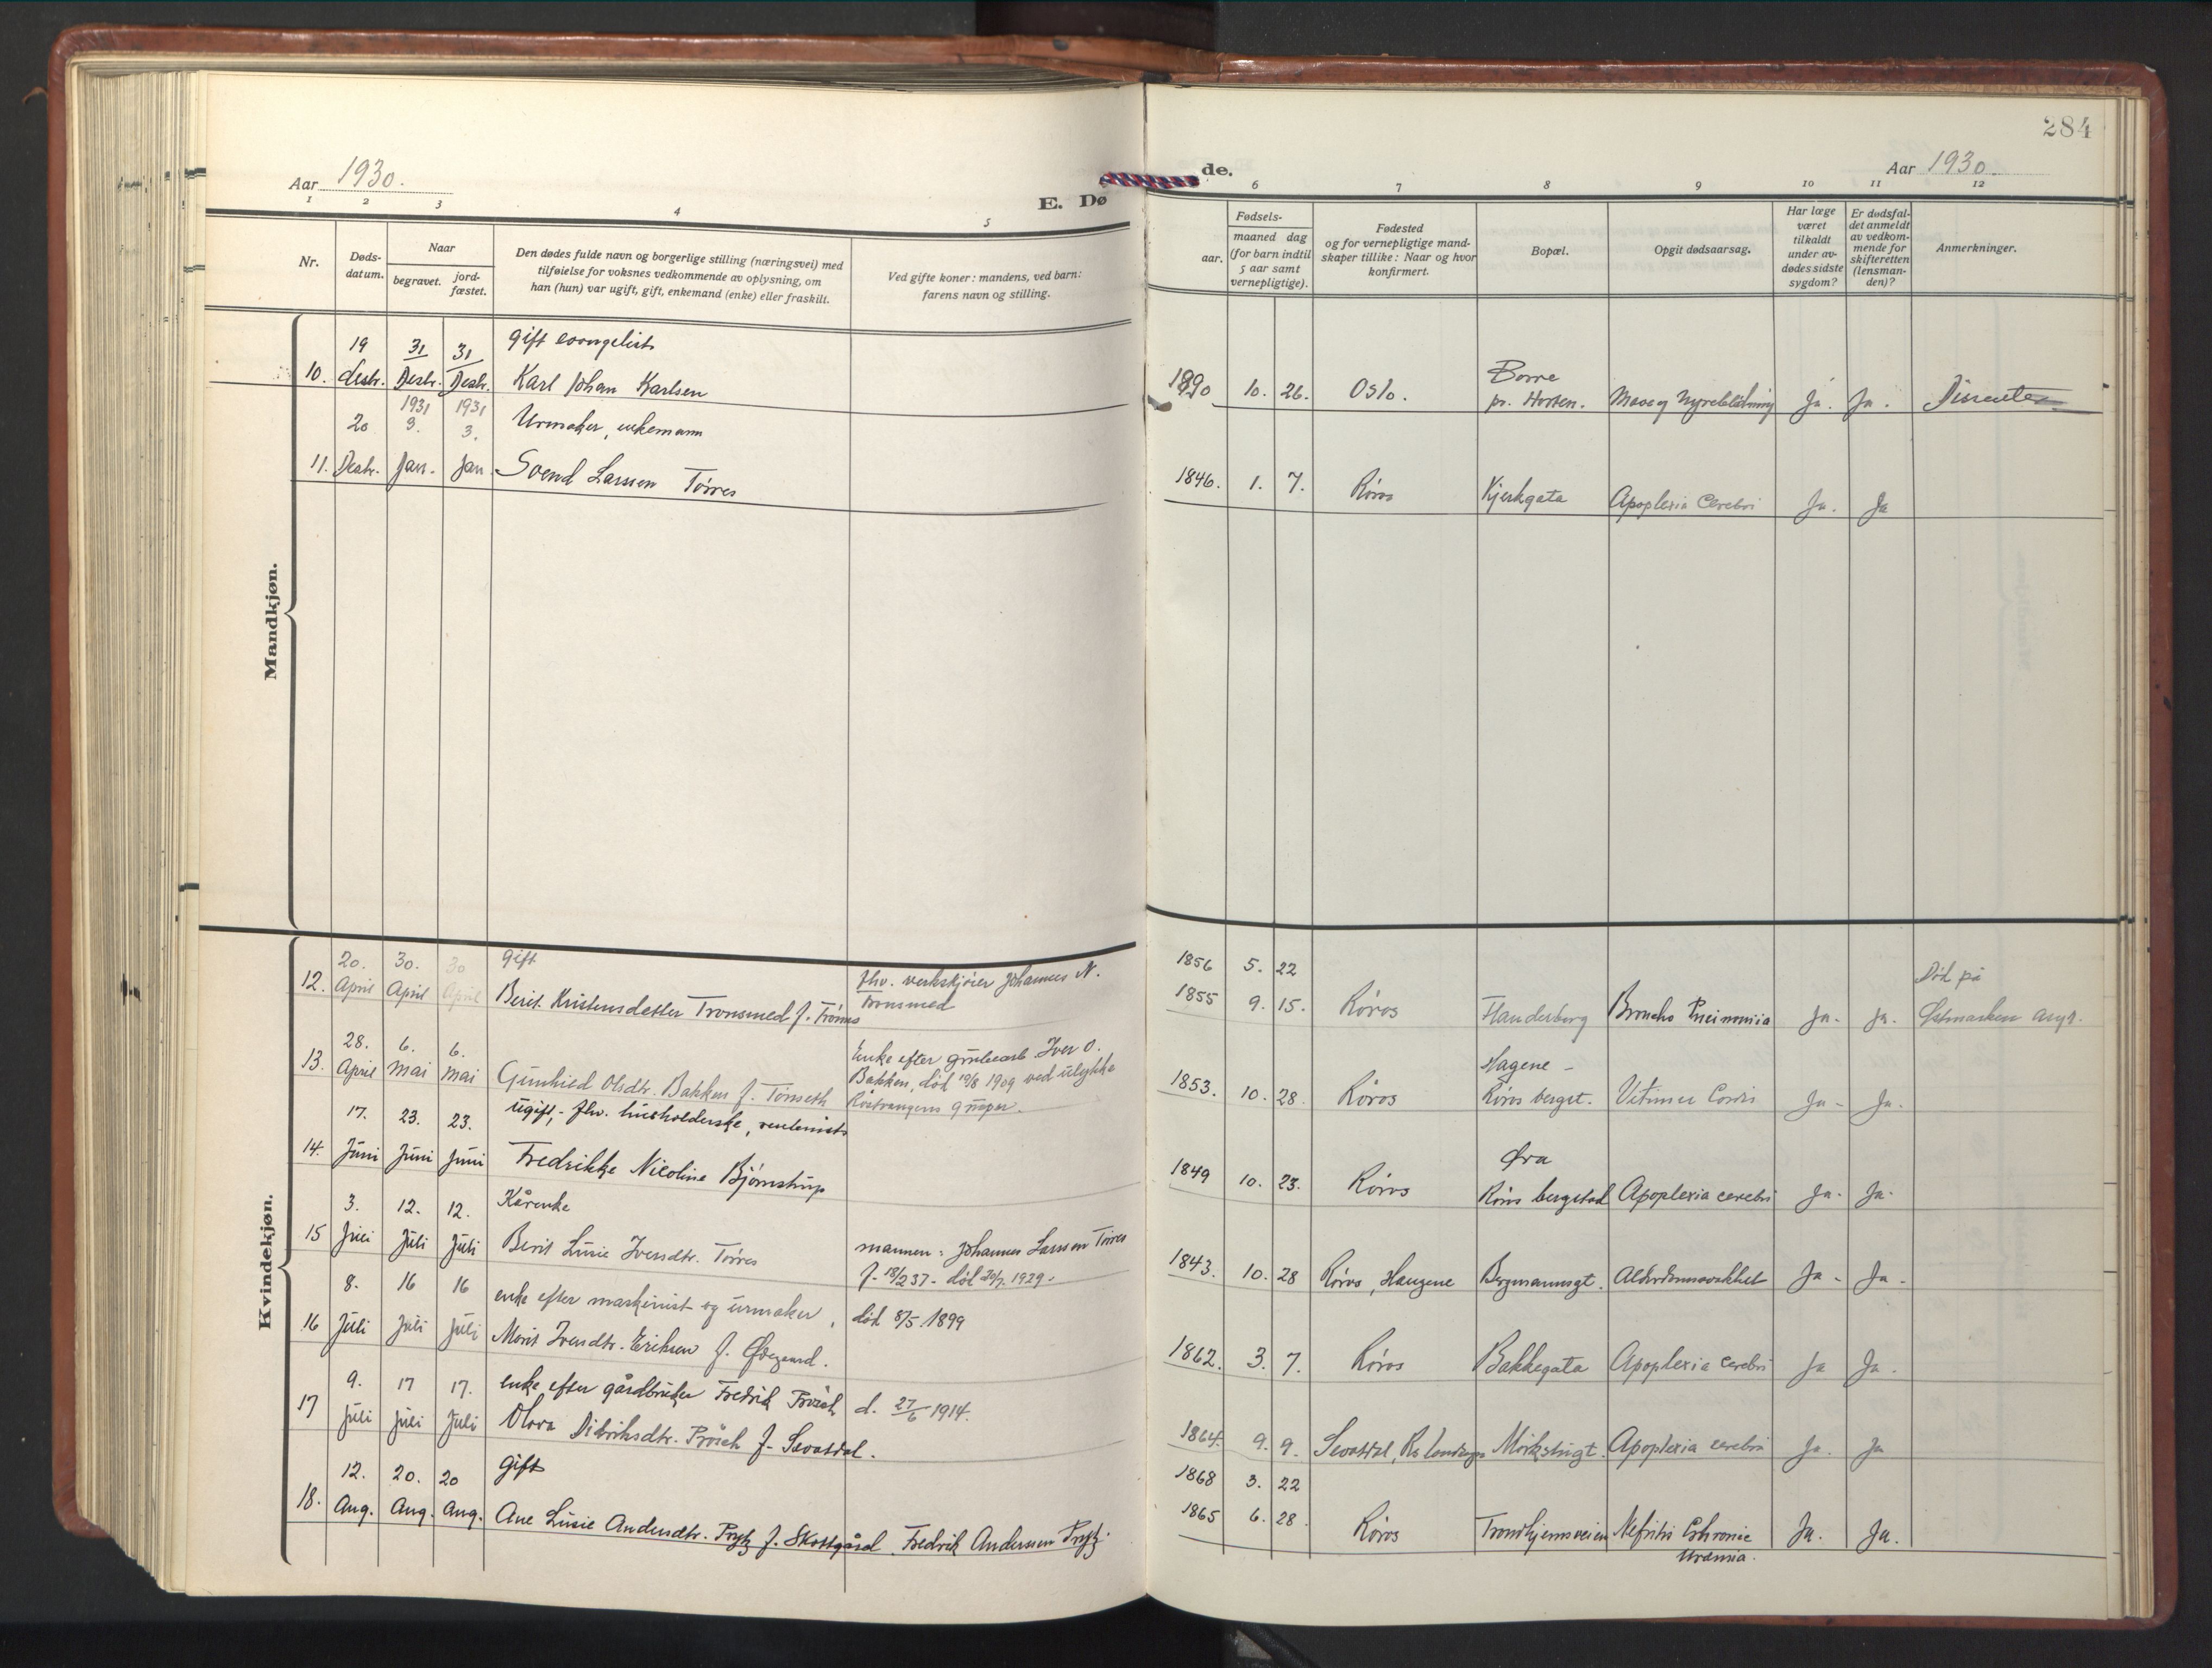 284
Aar 1930.
E. Dø
de.
Aar 1930.
1 2 3 4 5 6 7 8 9 10 11 12
Nr.
Døds-
datum.
Naar
begravet.
jord-
fæstet.
Den dødes fulde navn og borgerlige stilling (næringsvei) med
tilføielse for voksnes vedkommende av oplysning, om
han (hun) var ugift, gift, enkemand (enke) eller fraskilt.
Ved gifte koner: mandens, ved barn:
farens navn og stilling.
Fødsels-
aar.
maaned dag
(for barn indtil
5 aar samt
vernepligtige).
Fødested
og for vernepligtige mand-
skaper tillike: Naar og hvor
konfirmert.
Bopæl.
Opgit dødsaarsag.
Har læge
været
tilkaldt
under av-
dødes sidste
sygdom?
Er dødsfal-
det anmeldt
av vedkom-
mende for
skifteretten
(lensman-
den)?
Anmerkninger.
Mandkjøn.
19 31 31 gift evangelist Borre
10. Desbr. Desbr. Desbr. Karl Johan Karlsen 1890 10. 26. Oslo. pr. Horten. Mave og Nyreblødning Ja. Ja. Dissenter
1931 1931
20 3. 3. Urmaker, enkemann
11. Desbr. Jan. Jan. Svend Larssen Torres 1846. 1. 7. Røros Kjerkgata Apoplexia Cerebri Ja. Ja
Kvindekjøn.
20. 30. 30 gift fhv. verkskjører Johannes N. 1856 5. 22 Død på
12. April April April Berit Kristensdatter Tronsmed f. Tronsmed 1855 9. 15. Røros Flanderborg Broncho Ja. Ja. Østmarken asyl.
28. 6. 6. Enke efter grubearb. Iver O. Hagene -
13. April Mai Mai Gunhild Olsdtr. Bakken f. Tønseth Bakken, død 19/8 1909 ved ulykke 1853. 10. 28. Røros Røros bergst. Vitium Cordis Ja - Ja.
gruper.
17. 23. 23. ugift, - fhv. husholderske, rentenist Øra
14. Juni Juni Juni Fredrikke Nicoline Bjørnstrup 1849 10. 23. Røros Røros bergstad Apoplexia cerebri Ja. Ja.
3. 12. 12. Kårenke
15 Juli Juli Juli Berit Lusie Iversdtr. Torres mannen: Johannes Larssen Torres 1843. 10. 28 Røros, Haugene Bergmannsgt. Alderdomssvakhet Ja - Ja -
f. 18/2 37 - død 20/7. 1929.
8. 16 16 enke efter maskinist og urmaker, død 8/5. 1899
16 Juli Juli Juli Marit Iversdtr. Eriksen f. Ødegaard. 1862. 3. 7. Røros Bakkegata Apoplexia cerebri Ja Ja.
9. 17 17. enke efter gårdbruker Fredrik Prøsch d. 27/6 1914.
17 Juli Juli Juli Olava Didriksdtr. Prøsch f. Sevatdal. 1864. 9. 9. Sevatdal, Rs landsogn Mørkstugt. Apoplexia cerebri Ja. Ja
12. 20. 20 gift 1868 3. 22
18. Aug. Aug. Aug. Ane Lusie Andersdtr. Prytz f. Skottgård. Fredrik Anderssen Prytz. 1865 6. 28. Røros Trondhjemsveien Nefritis Chronic Ja. Ja.
Uræmia.